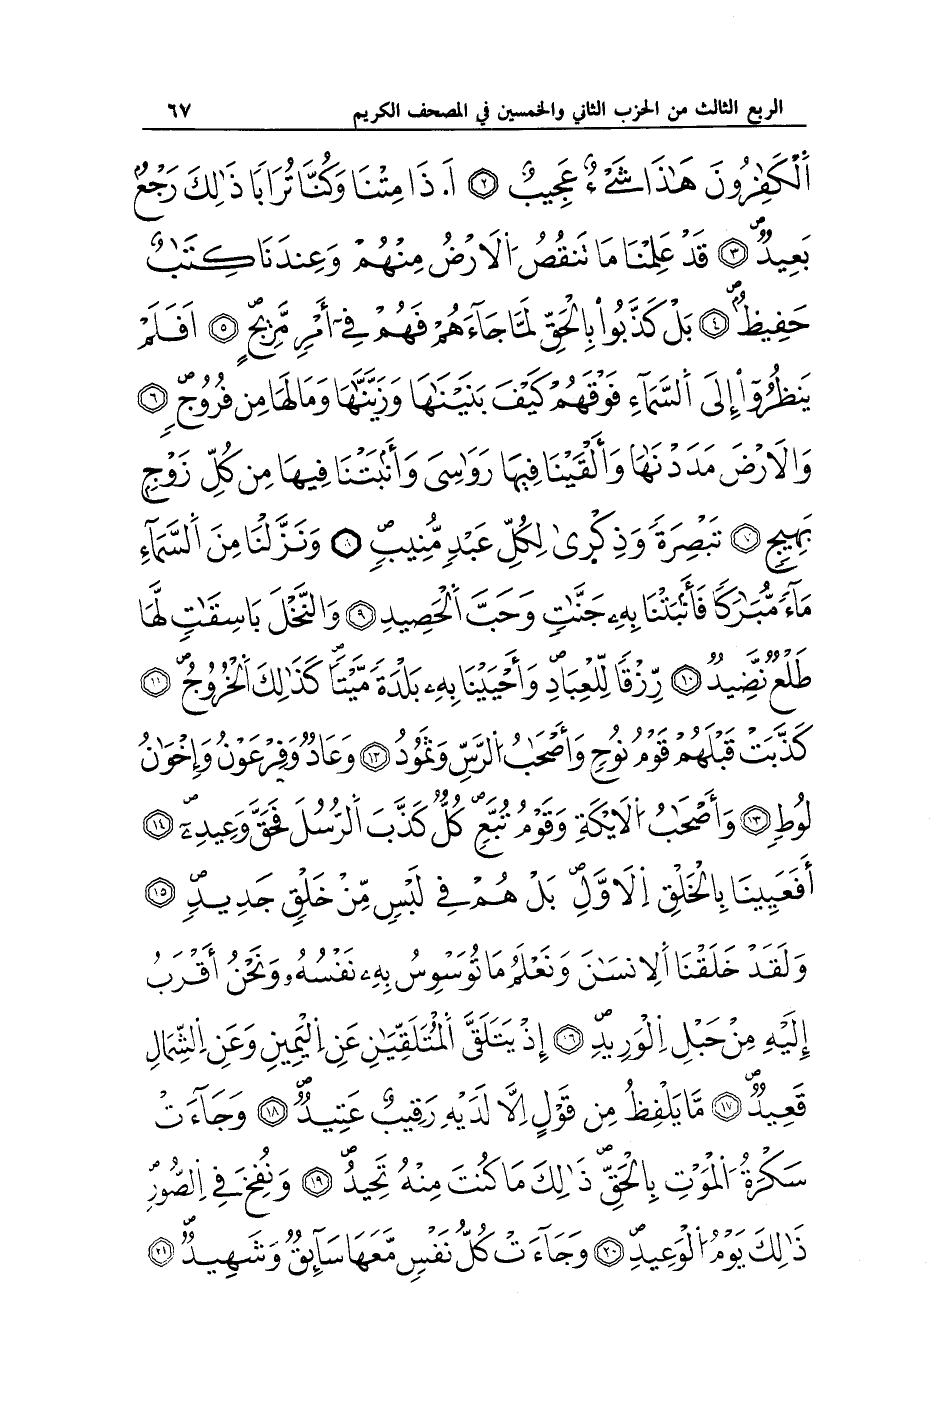 الربع الثالث من الحزب الثاني والخمسين في المصحف الكريم ٦٧
اَ۬لْكَٰفِرُونَ هَٰذَا شَےْءٌ عَجِيبٌ ٢ ا۟. ذَا مِتْنَا وَكُنَّا تُرَابًا ذَٰلِكَ رَجْعٌ
بَعِيدٌ ٣ قَدْ عَلِمْنَا مَا تَنقُصُ اُ۬لَارْضُ مِنْهُمْ وَعِندَنَا كِتَٰبٌ
حَفِيظٌ ٤ بَلْ كَذَّبُواْ بِالْحَقِّ لَمَّا جَآءَهُمْ فَهُمْ فِےٓ أَمْرٍ مَّرِيجٍ ٥ اَفَلَمْ
يَنظُرُوٓاْ إِلَى اَ۬لسَّمَآءِ فَوْقَهُمْ كَيْفَ بَنَيْنَٰهَا وَزَيَّنَّٰهَا وَمَا لَهَا مِن فُرُوجٍ ٦
وَالَارْضَ مَدَدْنَٰهَا وَأَلْقَيْنَا فِيهَا رَوَٰسِىَ وَأَنۢبَتْنَا فِيهَا مِن كُلِّ زَوْجٍ
بَهِيجٍ ٧ تَبْصِرَةً وَذِكْرَىٰ لِكُلِّ عَبْدٍ مُّنِيبٍ ٨ وَنَزَّلْنَا مِنَ اَ۬لسَّمَآءِ
مَآءً مُّبَٰرَكًا فَأَنۢبَتْنَا بِهِۦ جَنَّٰتٍ وَحَبَّ اَ۬لْحَصِيدِ ٩ وَالنَّخْلَ بَاسِقَٰتٍ لَّهَا
طَلْعٌ نَّضِيدٌ ١٠ رِّزْقًا لِّلْعِبَادِ وَأَحْيَيْنَا بِهِۦ بَلْدَةً مَّيْتًا كَذَٰلِكَ اَ۬لْخُرُوجُ ١١
كَذَّبَتْ قَبْلَهُمْ قَوْمُ نُوحٍ وَأَصْحَٰبُ اُ۬لرَّسِّ وَثَمُودُ ١٢ وَعَادٌ وَفِرْعَوْنُ وَإِخْوَٰنُ
لُوطٍ ١٣ وَأَصْحَٰبُ اُ۬لَايْكَةِ وَقَوْمُ تُبَّعٍ كُلٌّ كَذَّبَ اَ۬لرُّسُلَ فَحَقَّ وَعِيدِۦٓ ١٤
أَفَعَيِينَا بِالْخَلْقِ اِ۬لَاوَّلِ بَلْ هُمْ فِے لَبْسٍ مِّنْ خَلْقٍ جَدِيدٍ ١٥
وَلَقَدْ خَلَقْنَا اَ۬لِانسَٰنَ وَنَعْلَمُ مَا تُوَسْوِسُ بِهِۦ نَفْسُهُۥ وَنَحْنُ أَقْرَبُ
إِلَيْهِ مِنْ حَبْلِ اِ۬لْوَرِيدِ ١٦ إِذْ يَتَلَقَّى اَ۬لْمُتَلَقِّيَٰنِ عَنِ اِ۬لْيَمِينِ وَعَنِ اِ۬لشِّمَالِ
قَعِيدٌ ١٧ مَّا يَلْفِظُ مِن قَوْلٍ اِلَّا لَدَيْهِ رَقِيبٌ عَتِيدٌ ١٨ وَجَآءَتْ
سَكْرَةُ اُ۬لْمَوْتِ بِالْحَقِّ ذَٰلِكَ مَا كُنتَ مِنْهُ تَحِيدُ ١٩ وَنُفِخَ فِے اِ۬لصُّورِ
ذَٰلِكَ يَوْمُ اُ۬لْوَعِيدِ ٢٠ وَجَآءَتْ كُلُّ نَفْسٍ مَّعَهَا سَآئِقٌ وَشَهِيدٌ ٢١